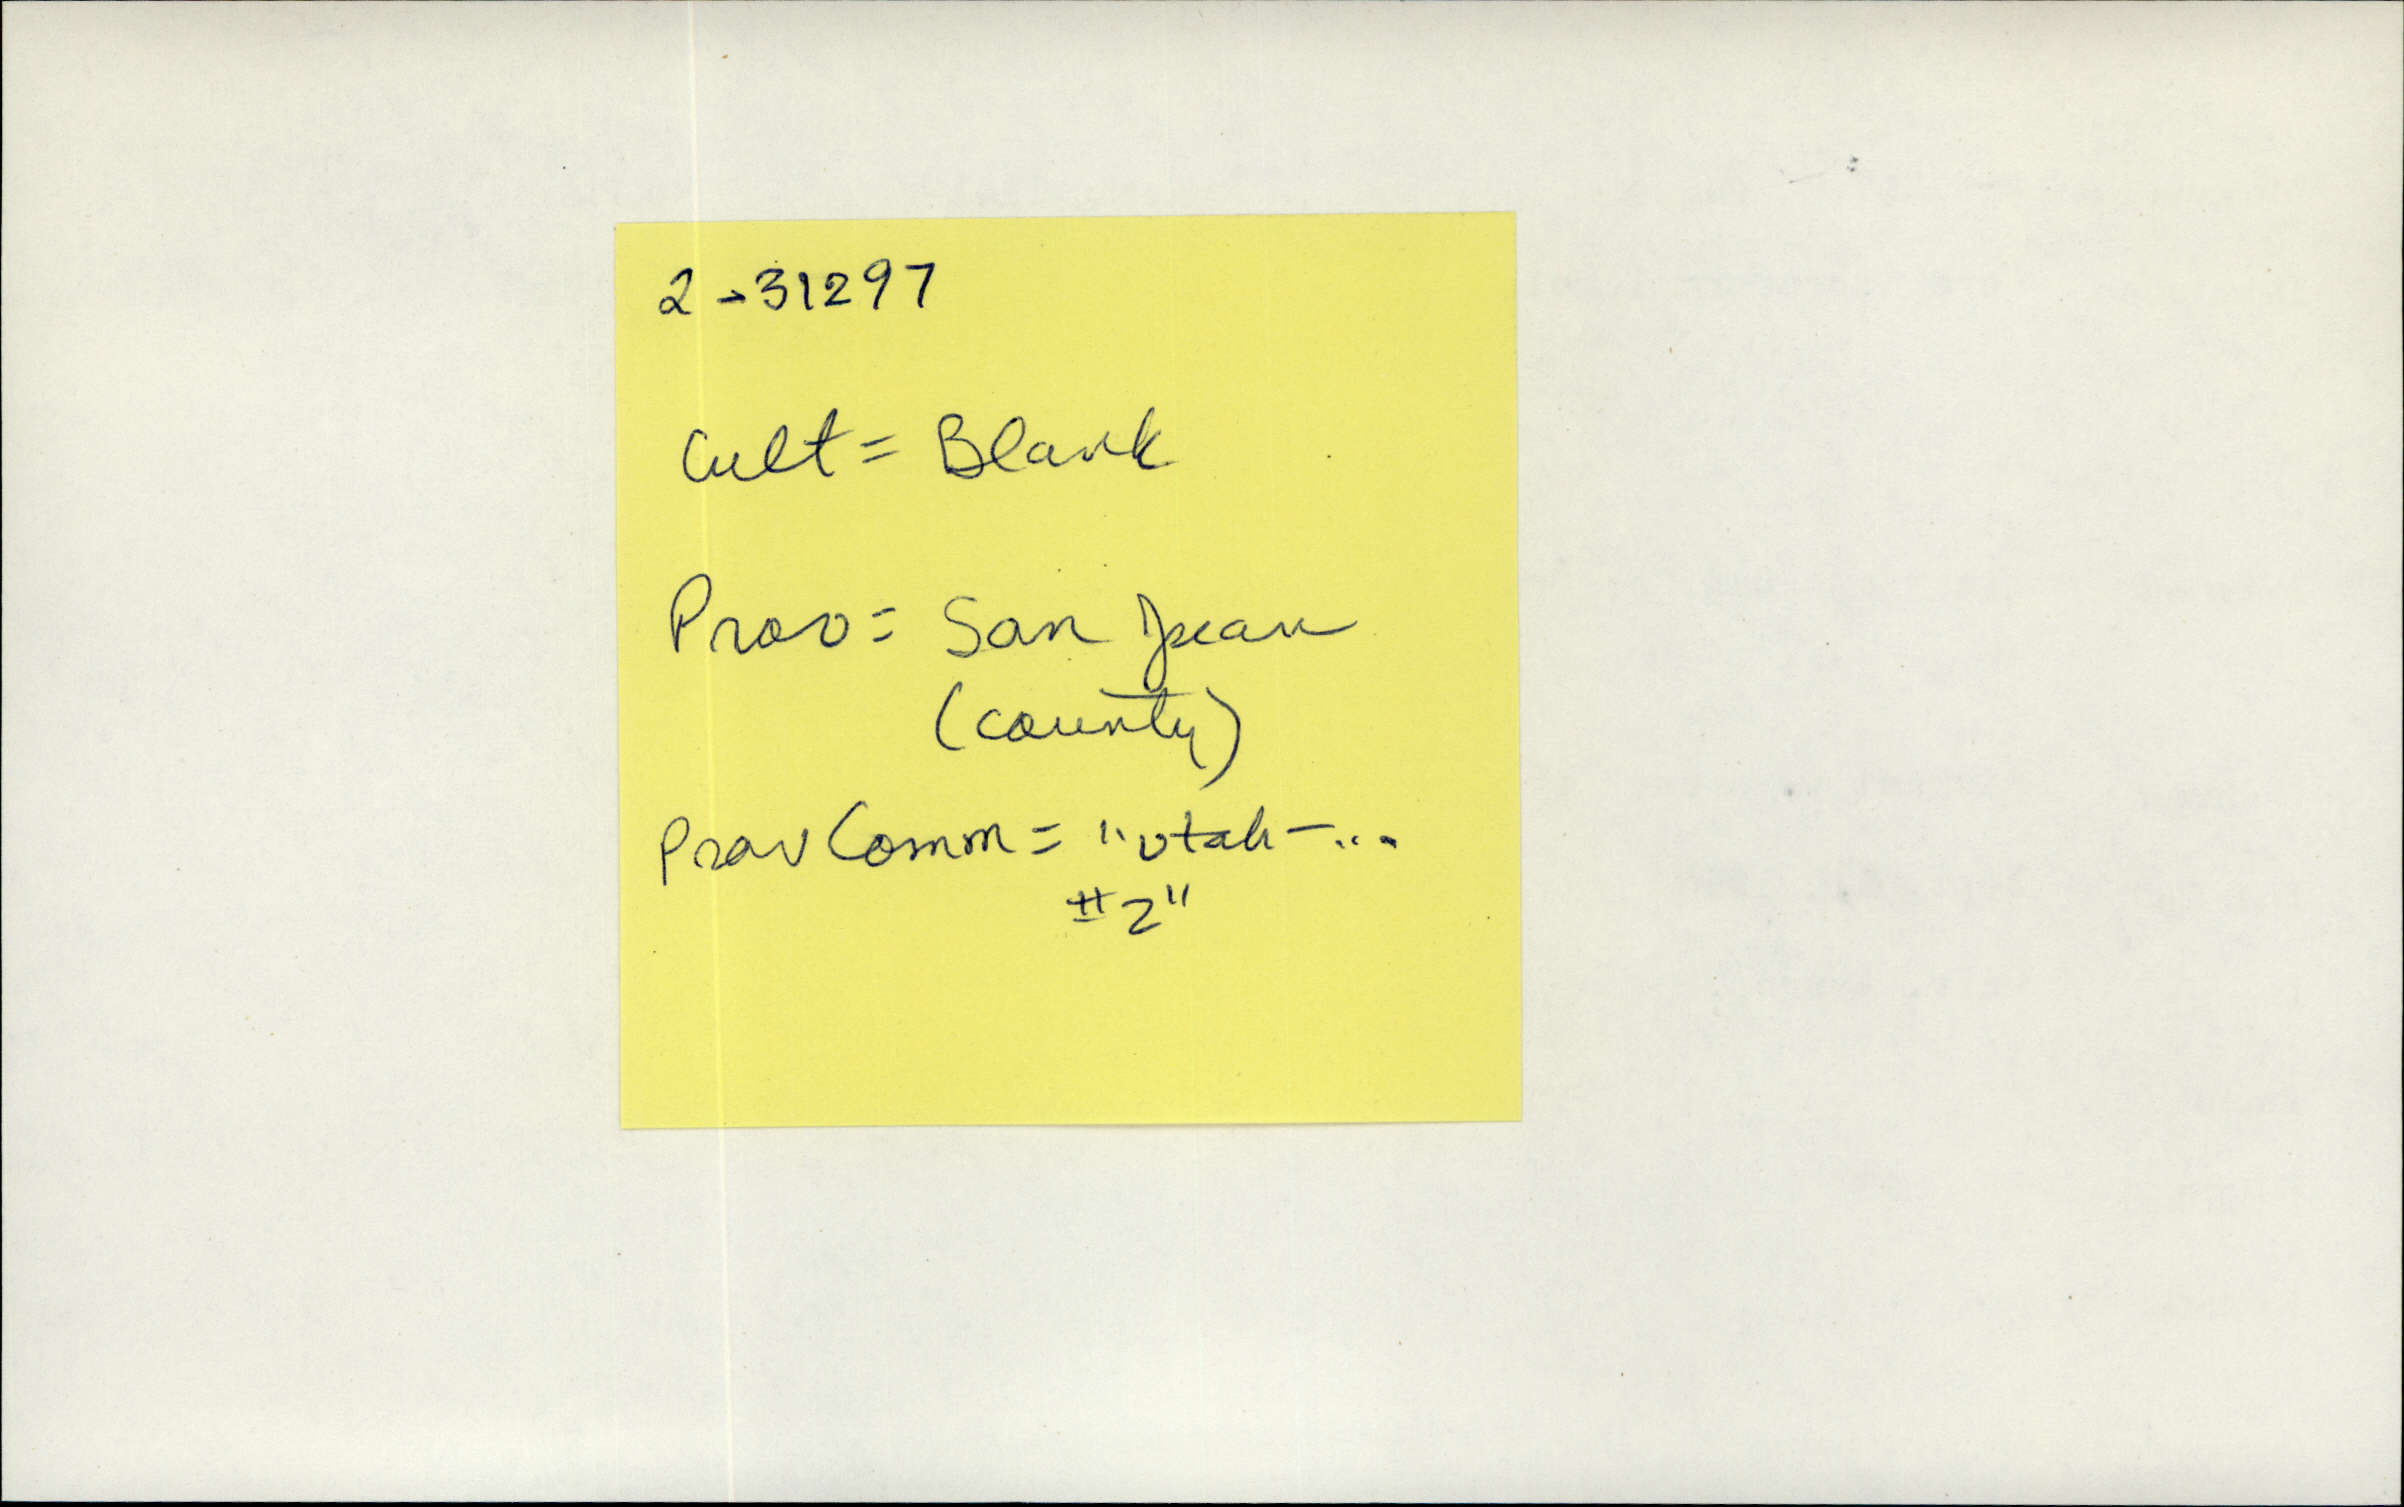 2-31297
Cult = Blank
Prov = San Juan
(county)
Prov Comm = "Utah-...
#2"